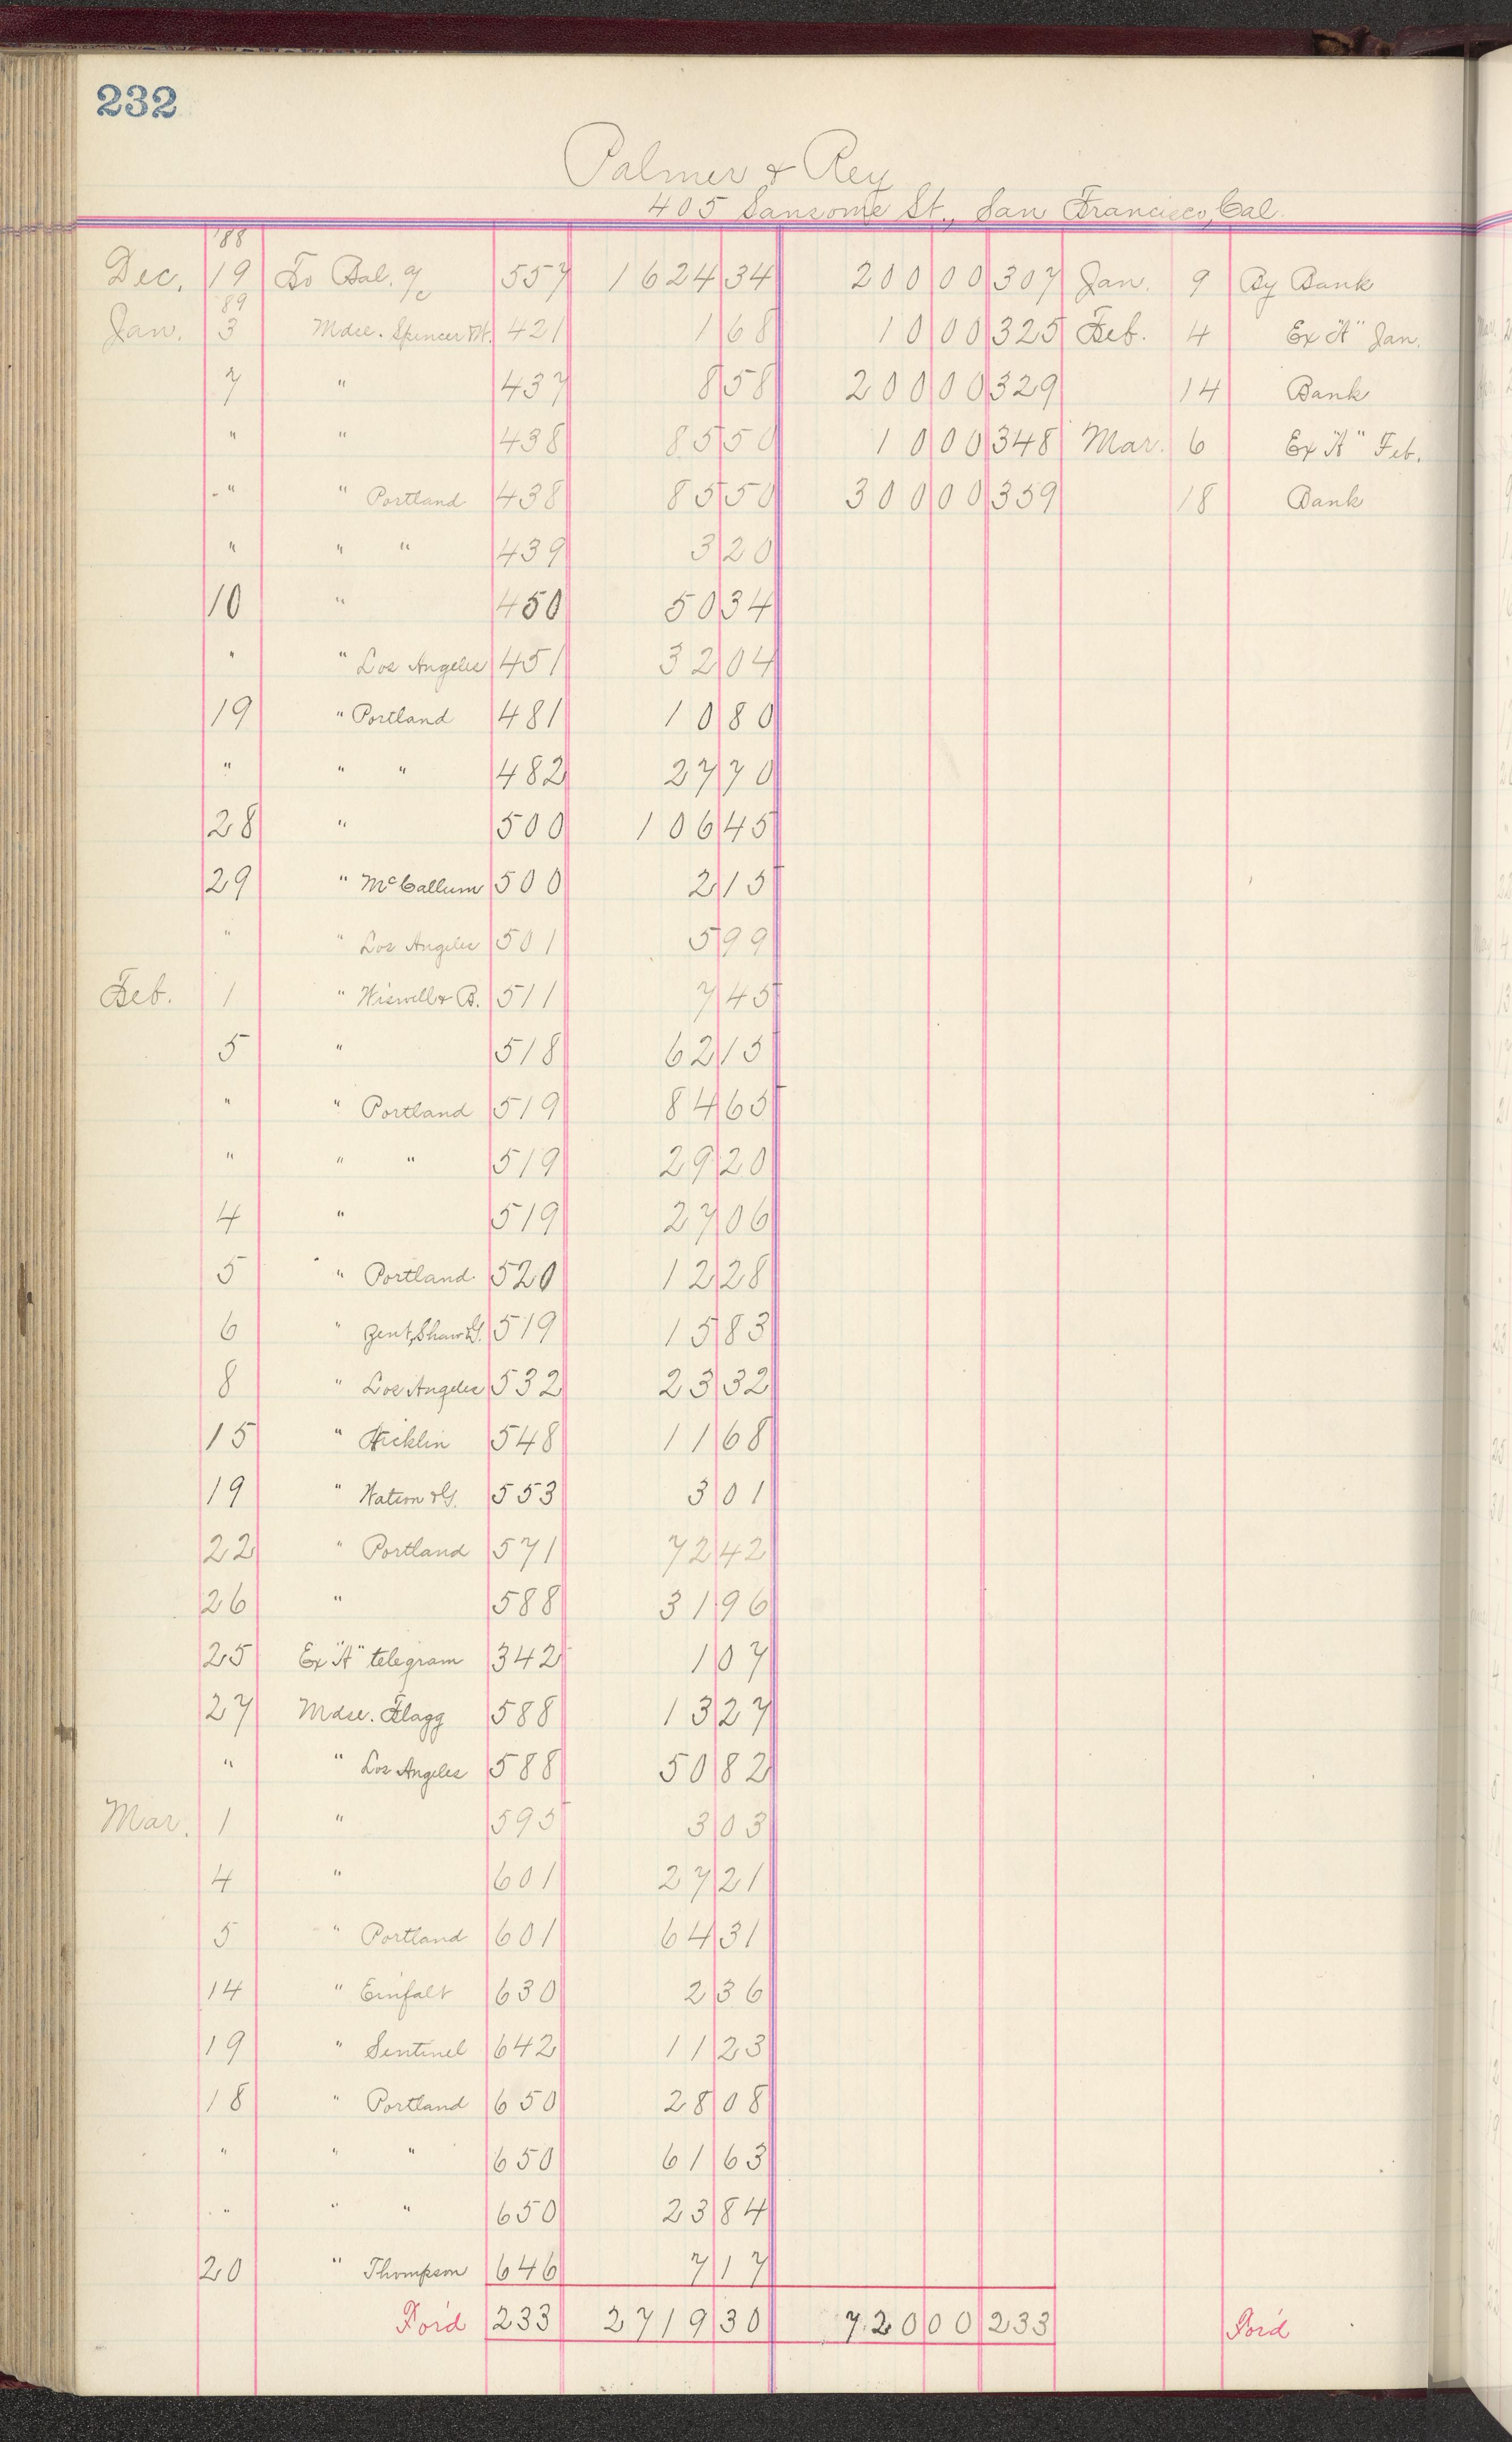 232
Palmer & Rey
405 Sansome St., San Francisco, Cal.
'88
Dec. 19 To Bal. a/c 557 1624 34 200 00 307 Jan. 9 By Bank
89
Jan. 3 Mdse. Spencer M. 421 1 68 10 00 325 Feb. 4 Ex "A" Jan.
7 " 437 8 58 200 00 329 14 Bank
" " 438 85 50 10 00 348 Mar. 6 Ex "A" Feb.
" " Portland 438 85 50 300 00 359 18 Bank
" " " 439 3 20
10 " 450 50 34
" " Los Angeles 451 32 04
19 " Portland 481 10 80
" " " 482 27 70
28 " 500 106 45
29 " McCallum 500 2 15
" " Los Angeles 501 5 99
Feb. 1 " Wiswell & B. 511 7 45
5 " 518 62 15
" " Portland 519 84 65
" " " 519 29 20
4 " 519 27 06
5 " Portland. 520 12 28
6 " Shaw 519 15 83
8 " Los Angeles 532 23 32
15 " Hicklin 548 11 68
19 " 553 3 01
22 " Portland 571 72 42
26 " 588 31 96
25 Ex "A" telegram 342 1 07
27 Mdse. Flagg 588 13 27
" " Los Angeles 588 50 82
Mar. 1 " 595 3 03
4 " 601 27 21
5 " Portland 601 64 31
14 " Einfalt 630 2 36
19 " Sentinel 642 11 23
18 " Portland 650 28 08
" " " 650 61 63
" " " 650 23 84
20 " Thompson 646 7 17
For'd 233 2719 30 720 00 233 For'd